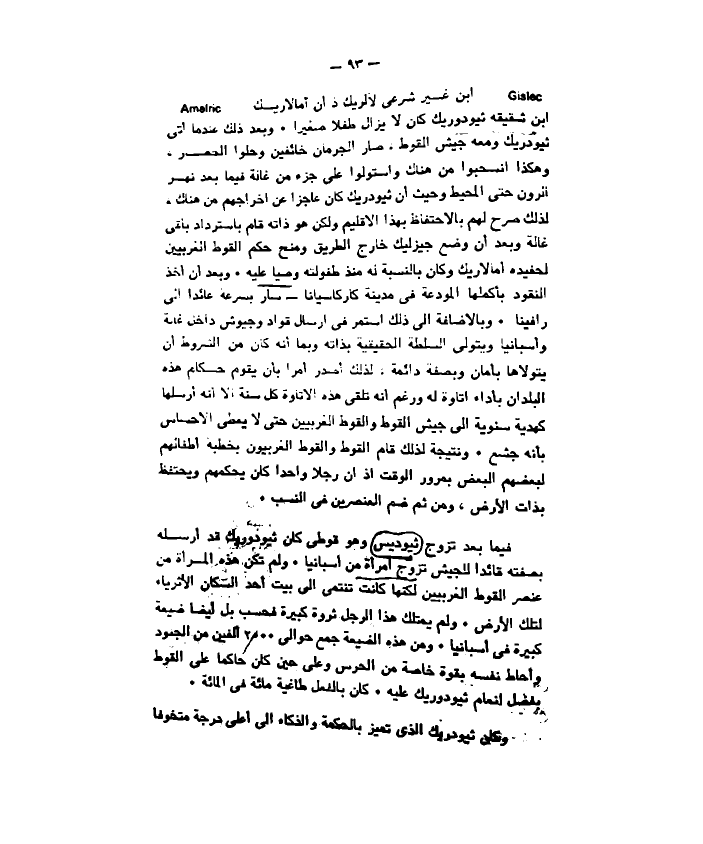 — ٩٣ —
Gislec ابن غسير شرعى لآلريك ذ أن آمالاريك Amalric
ابن شقيقه ثيودوريك كان لا يزال طفلا صغيرا ٠ وبعد ذلك عندما أتى
ثيودريك ومعه جيش القوط ، صار الجرمان خائفين وحلوا الحصر ،
وهكذا انسحبوا من هناك واستولوا على جزء من غالة فيما بعد نهر
الرون حتى المحيط وحيث أن ثيودريك كان عاجزا عن اخراجهم من هناك ،
لذلك صرح لهم بالاحتفاظ بهذا الاقليم ولكن هو ذاته قام باسترداد باقى
غالة وبعد أن وضع جيزليك خارج الطريق ومنح حكم القوط الغربيين
لحفيده أمالاريك وكان بالنسبة له منذ طفولته وصيا عليه ٠ وبعد أن أخذ
النقود بأكملها المودعة فى مدينة كاركاسيانا — سار بسرعة عائدا الى
رافينا ٠ وبالاضافة الى ذلك استمر فى ارسال قواد وجيوش داخل غالة
وأسبانيا ويتولى السلطة الحقيقية بذاته وبما أنه كان من الشروط أن
يتولاها بأمان وبصفة دائمة ، لذلك أصدر أمرا بأن يقوم حكام هذه
البلدان بأداء اتاوة له ورغم أنه تلقى هذه الاتاوة كل سنة الا أنه أرسلها
كهدية سنوية الى جيش القوط والقوط الغربيين حتى لا يعطى الاحساس
بأنه جشع ٠ ونتيجة لذلك قام القوط والقوط الغربيون بخطبة أطفالهم
لبعضهم البعض بمرور الوقت اذ ان رجلا واحدا كان يحكمهم ويحتفظ
بذات الأرض ، ومن ثم ضم العنصرين فى النسب ٠
فيما بعد تزوج ثيوديس وهو قوطى كان ثيودوريك قد أرسله
بصفته قائدا للجيش تزوج أمرأة من أسبانيا ٠ ولم تكن هذه المرأة من
عنصر القوط الغربيين لكنها كانت تنتمى الى بيت أحد السكان الأثرياء
لتلك الأرض ٠ ولم يمتلك هذا الرجل ثروة كبيرة فحسب بل أيضا ضيعة
كبيرة فى أسبانيا ٠ ومن هذه الضيعة جمع حوالى ٢٠٠٠ ألفين من الجنود
وأحاط نفسه بقوة خاصة من الحرس وعلى حين كان حاكما على القوط
بفضل انعام ثيودوريك عليه ٠ كان بالفعل طاغية مائة فى المائة ٠
وكان ثيودريك الذى تميز بالحكمة والذكاء الى أعلى درجة متخوفا